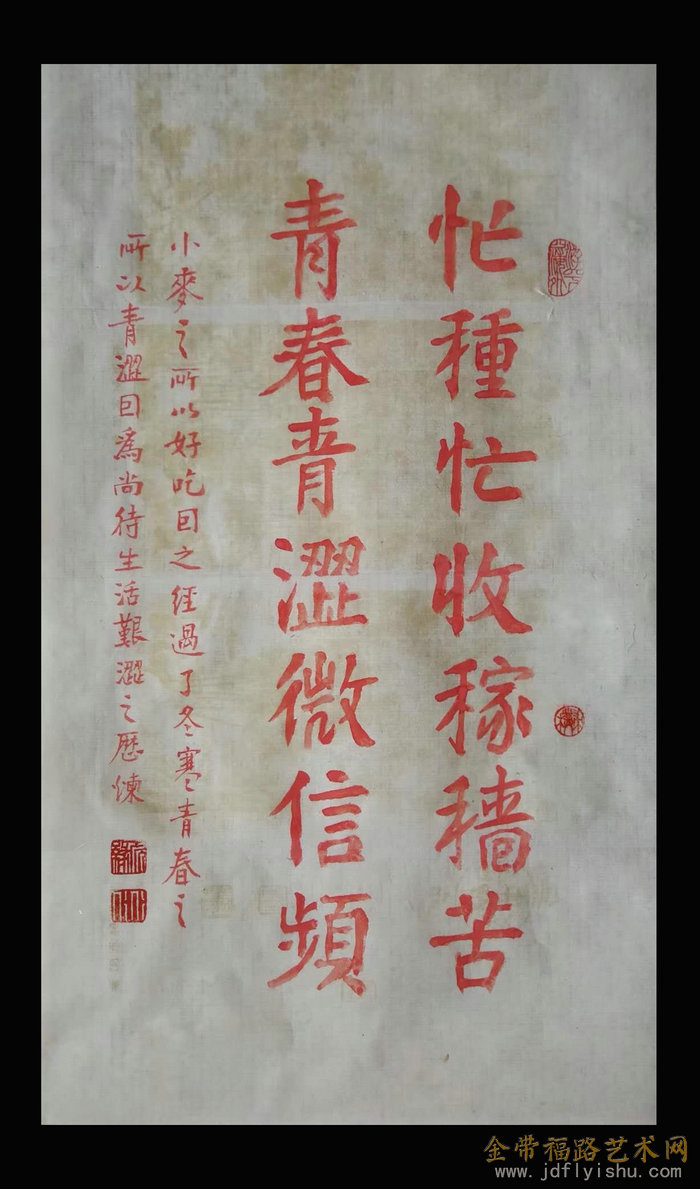 忙種忙收稼穡苦
青春青澀微信頻
小麥之所以好吃因之經過了冬寒青春之
所以青澀因為尚待生活艱澀之歷煉
金带福路艺术网
www.jdflyishu.com